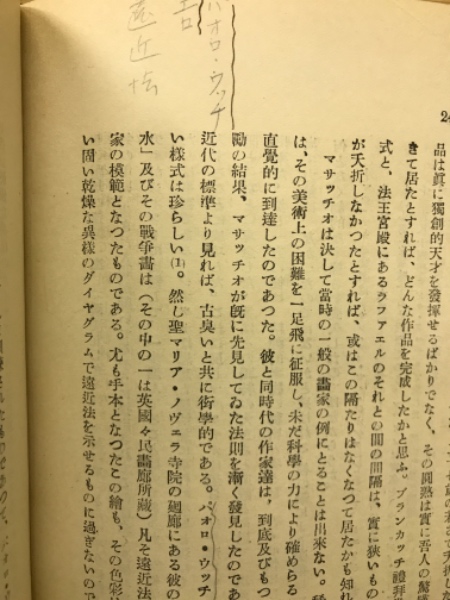 パオロ・ウッチ
エロ
遠近法
24
品は眞に獨創的天才を發揮せるばかりでなく、その圓熟は實に吾人の驚
きて居たとすれば、どんな作品を完成したかと思ふ。ブランカッチ禮拜
式と、法王宮殿にあるラファエルのそれとの間の間隔は、實に狹いもの
が夭折しなかつたとすれば、或はこの隔たりはなくなつて居たかも知れ
マサッチオは決して當時の一般の畫家の例にとることは出來ない。
は、その美術上の困難を一足飛に征服し、未だ科學の力により確めらる
直覺的に到達したのであつた。彼と同時代の作家達は、到底及びもつ
勵の結果、マサッチオが旣に先見してゐた法則を漸く發見したのであ
近代の標準より見れば、古臭いと共に衒學的である。パオロ・ウッチ
い樣式は珍らしい(1)。然し聖マリア・ノヴェラ寺院の廻廊にある彼の
水」及びその戰爭畫は(その中の一は英國々民畫廊所藏)凡そ遠近法
家の模範となつたものである。尤も手本となつたこの繪も、その色彩
い固い乾燥な異樣のダイヤグラムで遠近法を示せるものに過ぎないので